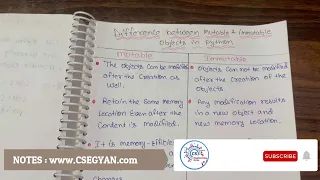 Difference between Mutable & Immutable
Objects in Python
Mutable
Immutable
• The Objects can be modified
after the Creation as
well.
• Objects Can not be modified
after the Creation of the
Objects
• Retain the Same Memory
Location Even after the
Content is Modified.
• Any Modification results
in a new Object and
new Memory Location.
• It is memory-Efficie
NOTES : www.CSEGYAN.com
SUBSCRIBE